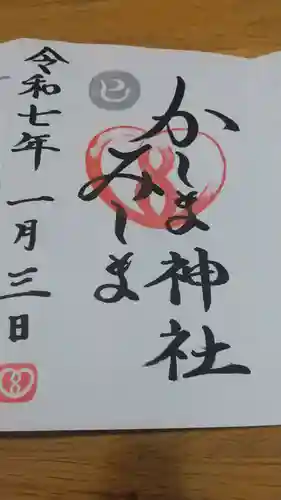 かしま神社
みしま
巳
令和七年一月三日
8
8